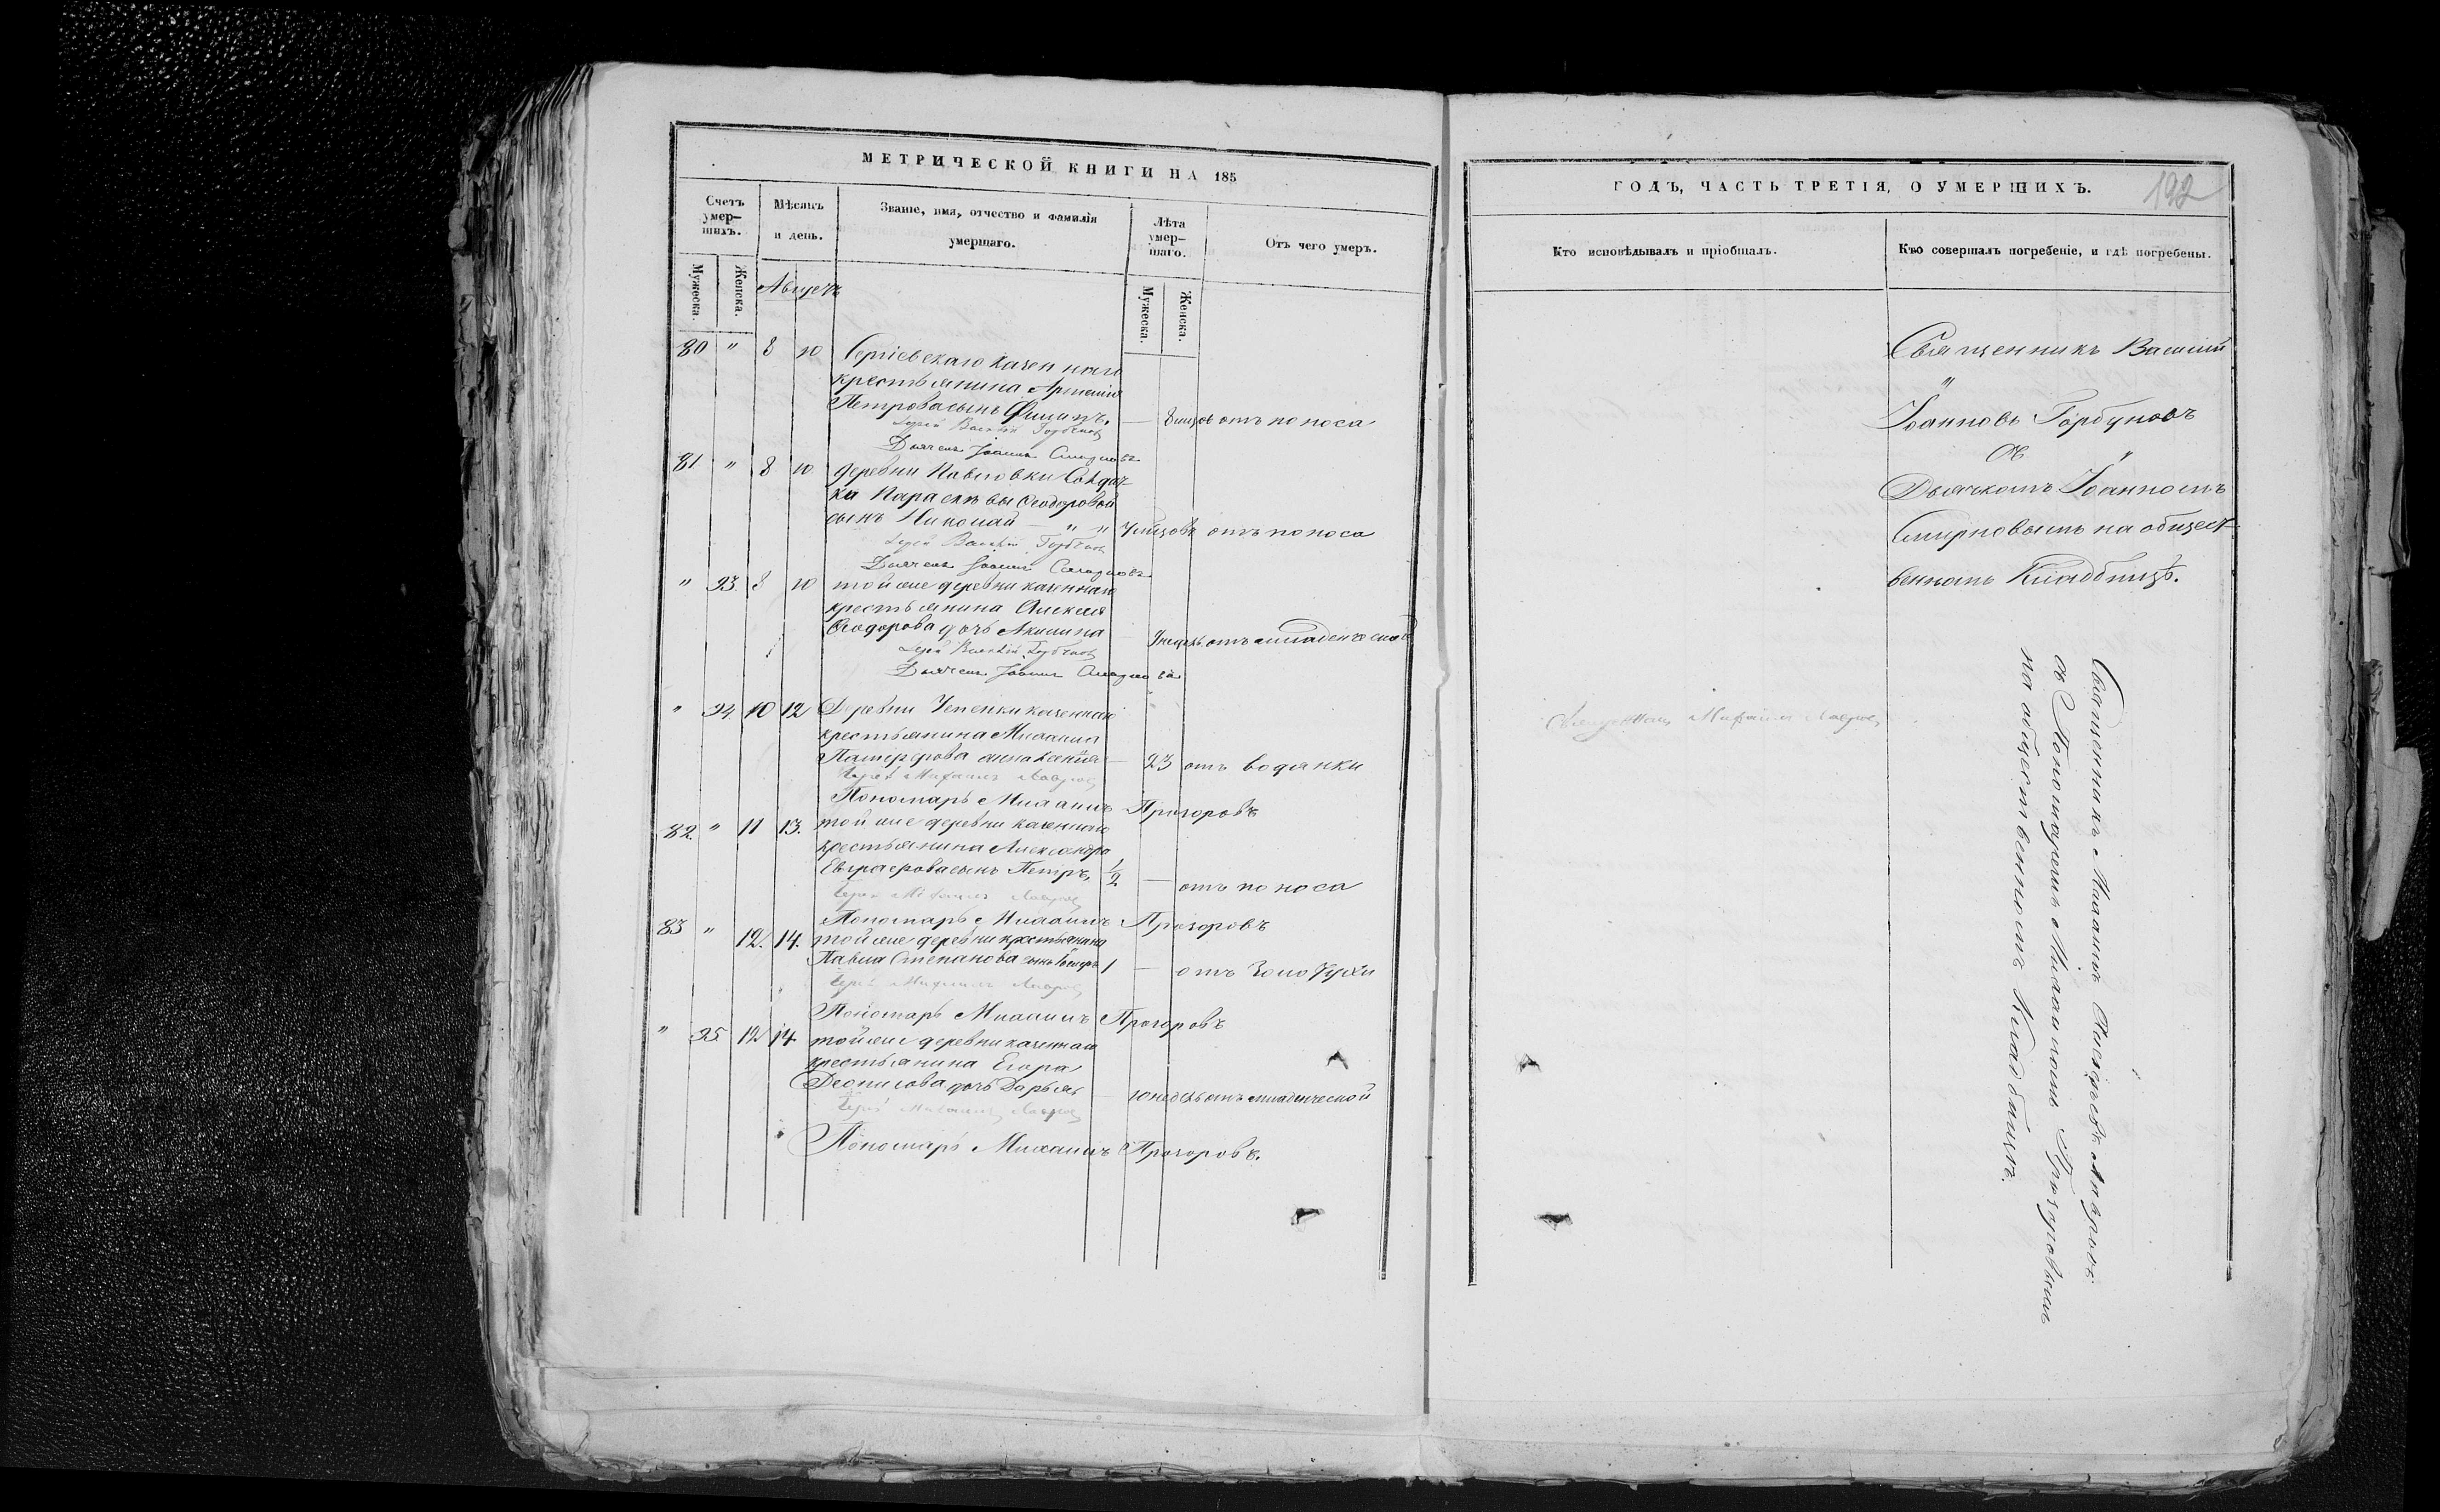 МЕТРИЧЕСКОЙ КНИГИ НА 185
Счетъ умер-
шихъ.
Мѣсяцъ
и день.
Званіе, имя, отчество и фамилія
умершаго.
Лѣта
умер-
шаго.
Отъ чего умеръ.
Мужеска.
Женска.
Августъ
Мужеска.
Женска.
80 " 8 10 Сергіевскаго казеннаго
крестьянина
Петрова сынъ Филипъ. — отъ поноса
Іерей Василій Горбуновъ
Дьячекъ Іоаннъ Смирновъ
81 " 8 10 деревни Павловки Солдат-
ки Параскевы Ѳеодоровой
сынъ Николай — " " отъ поноса
Іерей Василій Горбуновъ
Дьячекъ Іоаннъ Смирновъ
" 93. 8 10 той же деревни казеннаго
крестьянина Алексея
Ѳеодорова дочь Акилина — отъ младенческой
Іерей Василій Горбуновъ
Дьячекъ Іоаннъ Смирновъ
" 94. 10 12 Деревни казеннаго
крестьянина Михаила
жена — 23 отъ водянки
Іерей Михаилъ
Пономарь Михаилъ Прозоровъ
82. " 11 13. той же деревни казеннаго
крестьянина Александра
сынъ Петръ, 1/2 — отъ поноса
Іерей Михаилъ
Пономарь Михаилъ Прозоровъ
83 " 12. 14. той же деревни крестьянина
Павла Степанова сынъ 1 — отъ Золотухи
Іерей Михаилъ
Пономарь Михаилъ Прозоровъ
" 95 12 14 той же деревни казеннаго
крестьянина Егора
дочь Дарья — 10 недель отъ младенческой
Іерей Михаилъ
Пономарь Михаилъ Прозоровъ.
ГОДЪ, ЧАСТЬ ТРЕТІЯ, О УМЕРШИХЪ.
192
Кто исповѣдывалъ и пріобщалъ.
Кто совершалъ погребеніе, и гдѣ погребены.
Священникъ Василій
Іоанновъ Горбуновъ
съ
Дьячкомъ Іоанномъ
Смирновымъ на общест-
венномъ Кладбищѣ.
Священникъ Михаилъ
Священникъ Михаилъ
съ Пономаремъ Михаиломъ Прозоровымъ
на общественномъ Кладбищѣ.